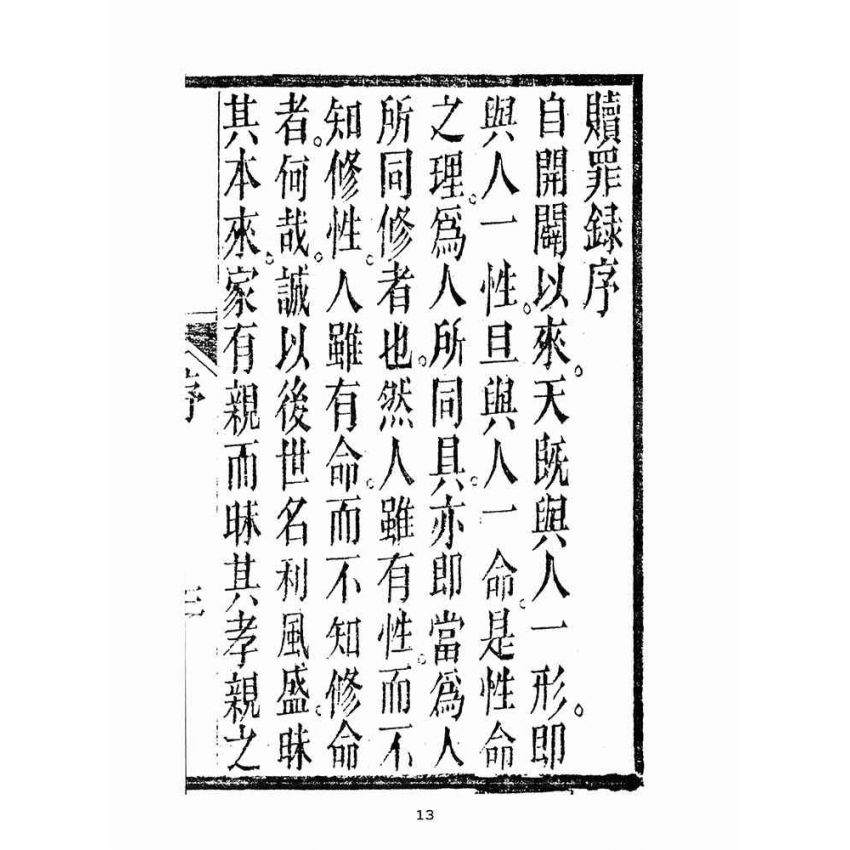 贖罪録序
自開闢以來。天既與人一形。即
與人一性。且與人一命。是性命
之理。爲人所同具。亦即當爲人
所同修者也。然人雖有性。而不
知修性。人雖有命。而不知修命
者。何哉。誠以後世名利風盛。昧
其本來。家有親而昧其孝親之
序
三
13